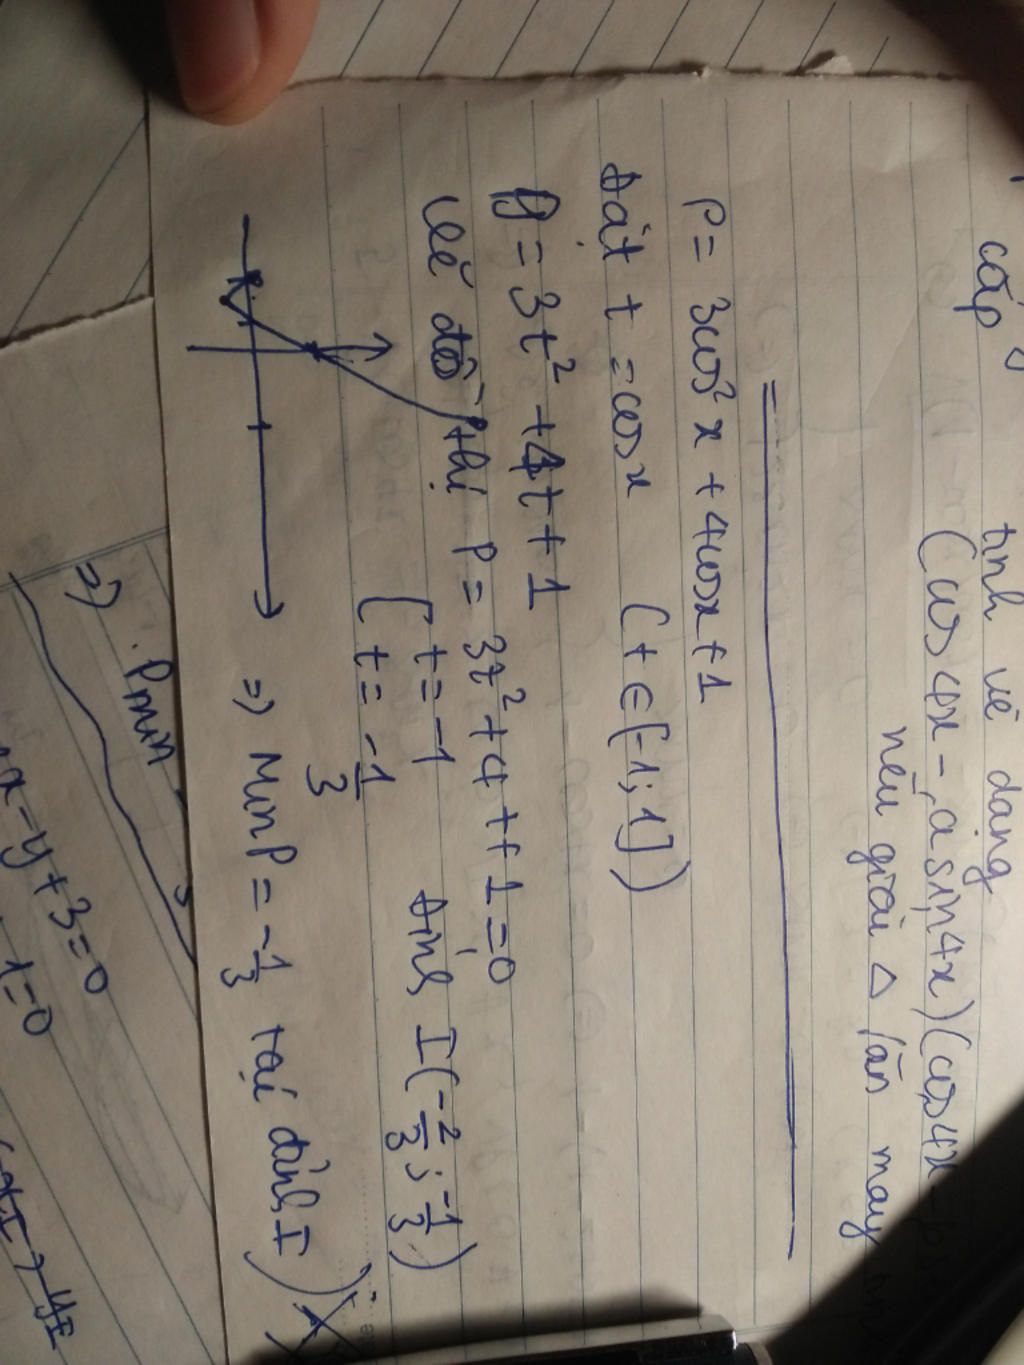 cấp
tính về dạng
(cos4x - a sin4x)(cos4x -
nếu giải Δ lần
P = 3cos²x + 4cosx + 1
Đặt t = cosx (t ∈ [-1; 1])
y = 3t² + 4t + 1
vẽ đồ thị P = 3t² + 4t + 1 = 0
[ t = -1
t = -1/3
Đỉnh I(-2/3; -1/3)
=> Min P = -1/3 tại đỉnh I)
=> Pmin
x - y + 3 = 0
1 = 0